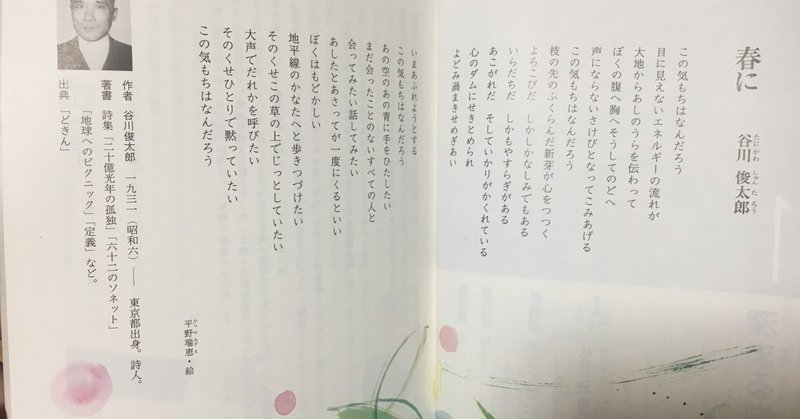 春に
谷川 俊太郎
たにかわ しゅんたろう
この気もちはなんだろう
目に見えないエネルギーの流れが
大地からあしのうらを伝わって
ぼくの腹へ胸へそうしてのどへ
声にならないさけびとなってこみあげる
この気もちはなんだろう
枝の先のふくらんだ新芽が心をつつく
よろこびだ しかしかなしみでもある
いらだちだ しかもやすらぎがある
あこがれだ そしていかりがかくれている
心のダムにせきとめられ
よどみ渦まきせめぎあい
いまあふれようとする
この気もちはなんだろう
あの空のあの青に手をひたしたい
まだ会ったことのないすべての人と
会ってみたい話してみたい
あしたとあさってが一度にくるといい
ぼくはもどかしい
地平線のかなたへと歩きつづけたい
そのくせこの草の上でじっとしていたい
大声でだれかを呼びたい
そのくせひとりで黙っていたい
この気もちはなんだろう
平野瑞恵・絵
作者 谷川俊太郎 一九三一(昭和六)── 東京都出身。詩人。
著書 詩集「二十億光年の孤独」「六十二のソネット」
「地球へのピクニック」「定義」など。
出典 「どきん」